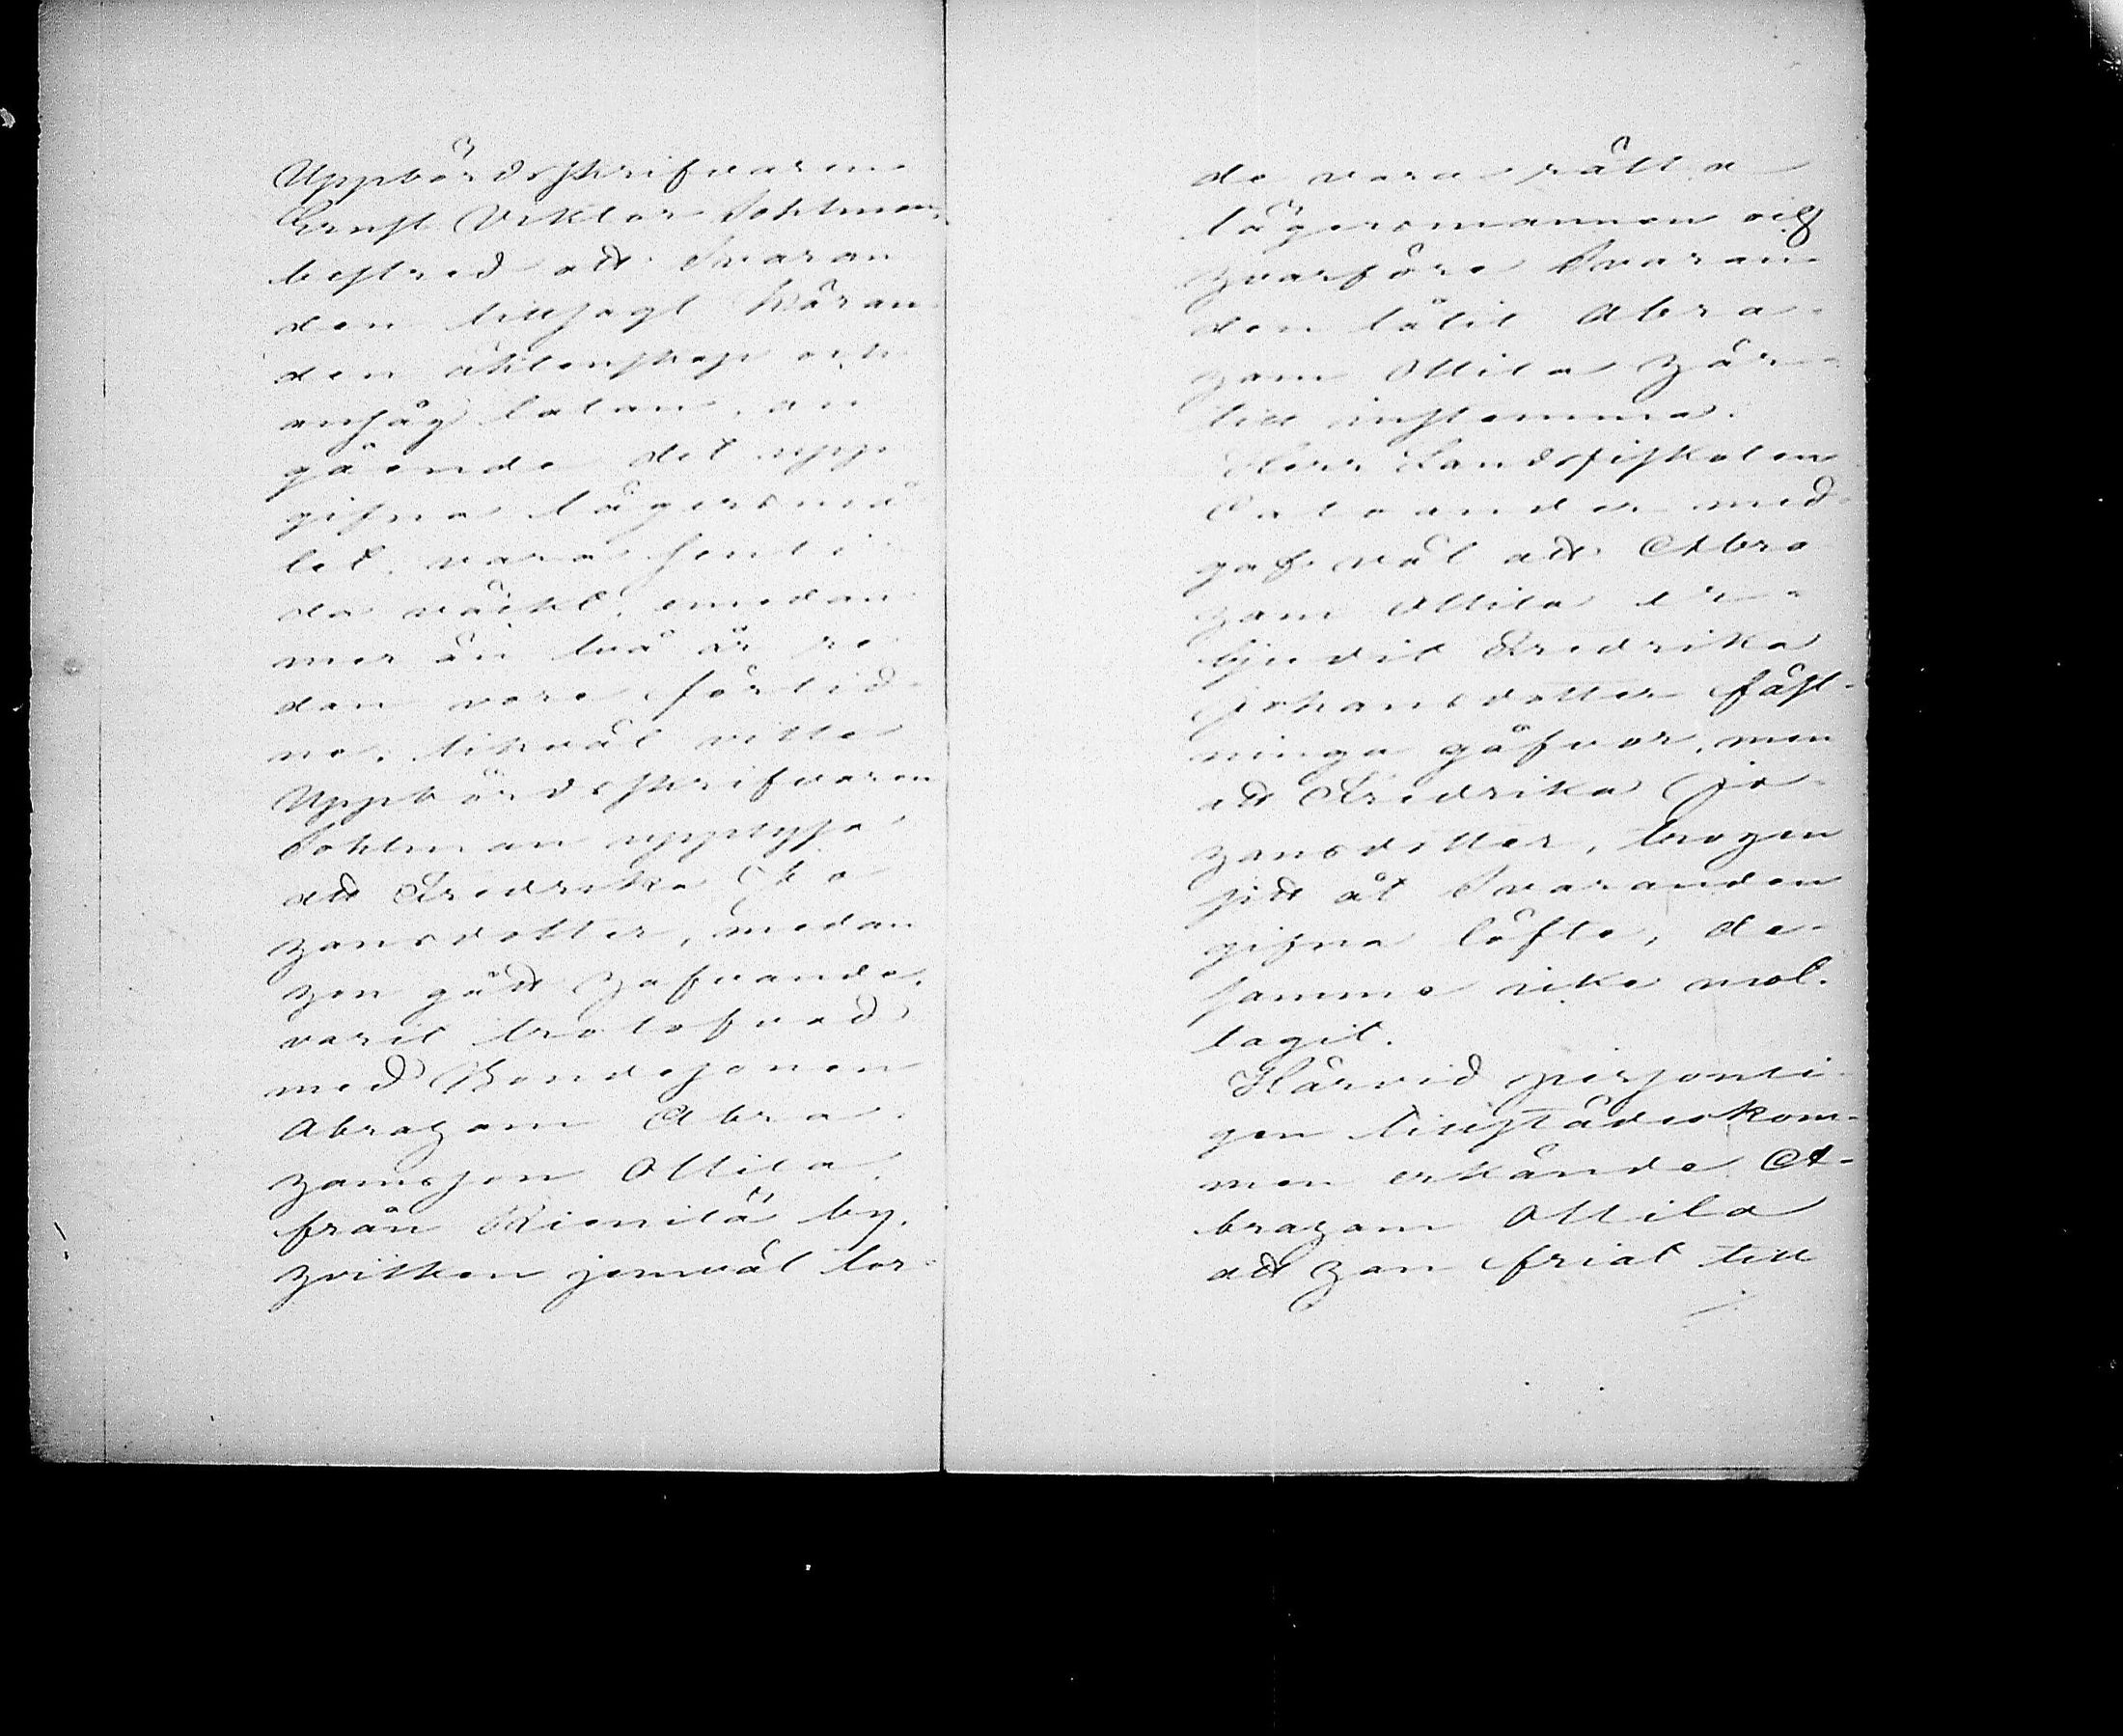 Uppbördsskrifvaren
Ernst Viktor Sohlman
bestred att Svaran
den tillsagt Käran
den äktenskap och
ansåg talan, an
gående det upp
gifna lägersmå
let, vara för sent
da väckt, emedan
mer än två år re
dan vore förlid-
na, likväl ville
Uppbördsskrifvaren
Sohlman upplysa
att Fredrika Jo
hansdotter, medan
hon gått hafvande,
varit trolofvad
med Bondesonen
Abraham Abra
hamsson Ollila,
från Kiimilä by,
hvilken jemväl tor-
de vara rätta
lägersmannen och
hvarföre Svaran-
den låtit Abra-
ham Ollila här-
till instemma.
Herr Landsfiskalen
Caloander med-
gaf väl att Abra
ham Ollila er-
bjudit Fredrika
Johansdotter fäst-
ninga gåfvor, men
att Fredrika Jo-
hansdotter, trogen
sitt åt Svaranden
gifna löfte, de-
samma icke mot-
tagit.
Härvid personli-
gen tillstädeskom-
men erkände A-
braham Ollila
att han friat till